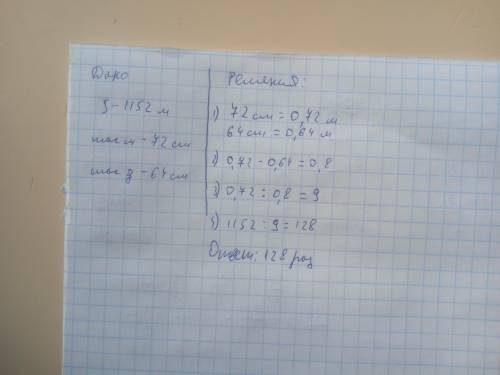 Дано
S-1152 м
шаг м - 72 см
шаг д - 64 см
Решения:
1) 72 см = 0,72 м
64 см = 0,64 м
2) 0,72 - 0,64 = 0,8
3) 0,72 : 0,8 = 9
4) 1152 : 9 = 128
Ответ: 128 раз